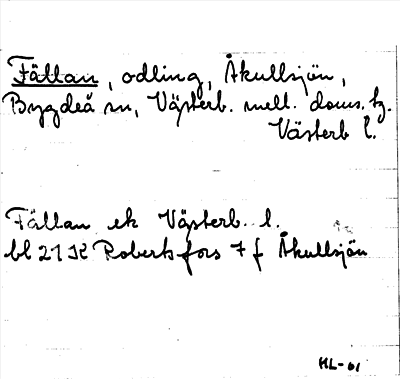 Fällan, odling, Åkullsjön,
Bygdeå sn, Västerb. mell. doms. tg.
Västerb l.
Fällan ek Västerb. l.
bl 21K Robertsfors 7 f Åkullsjön
HL-01